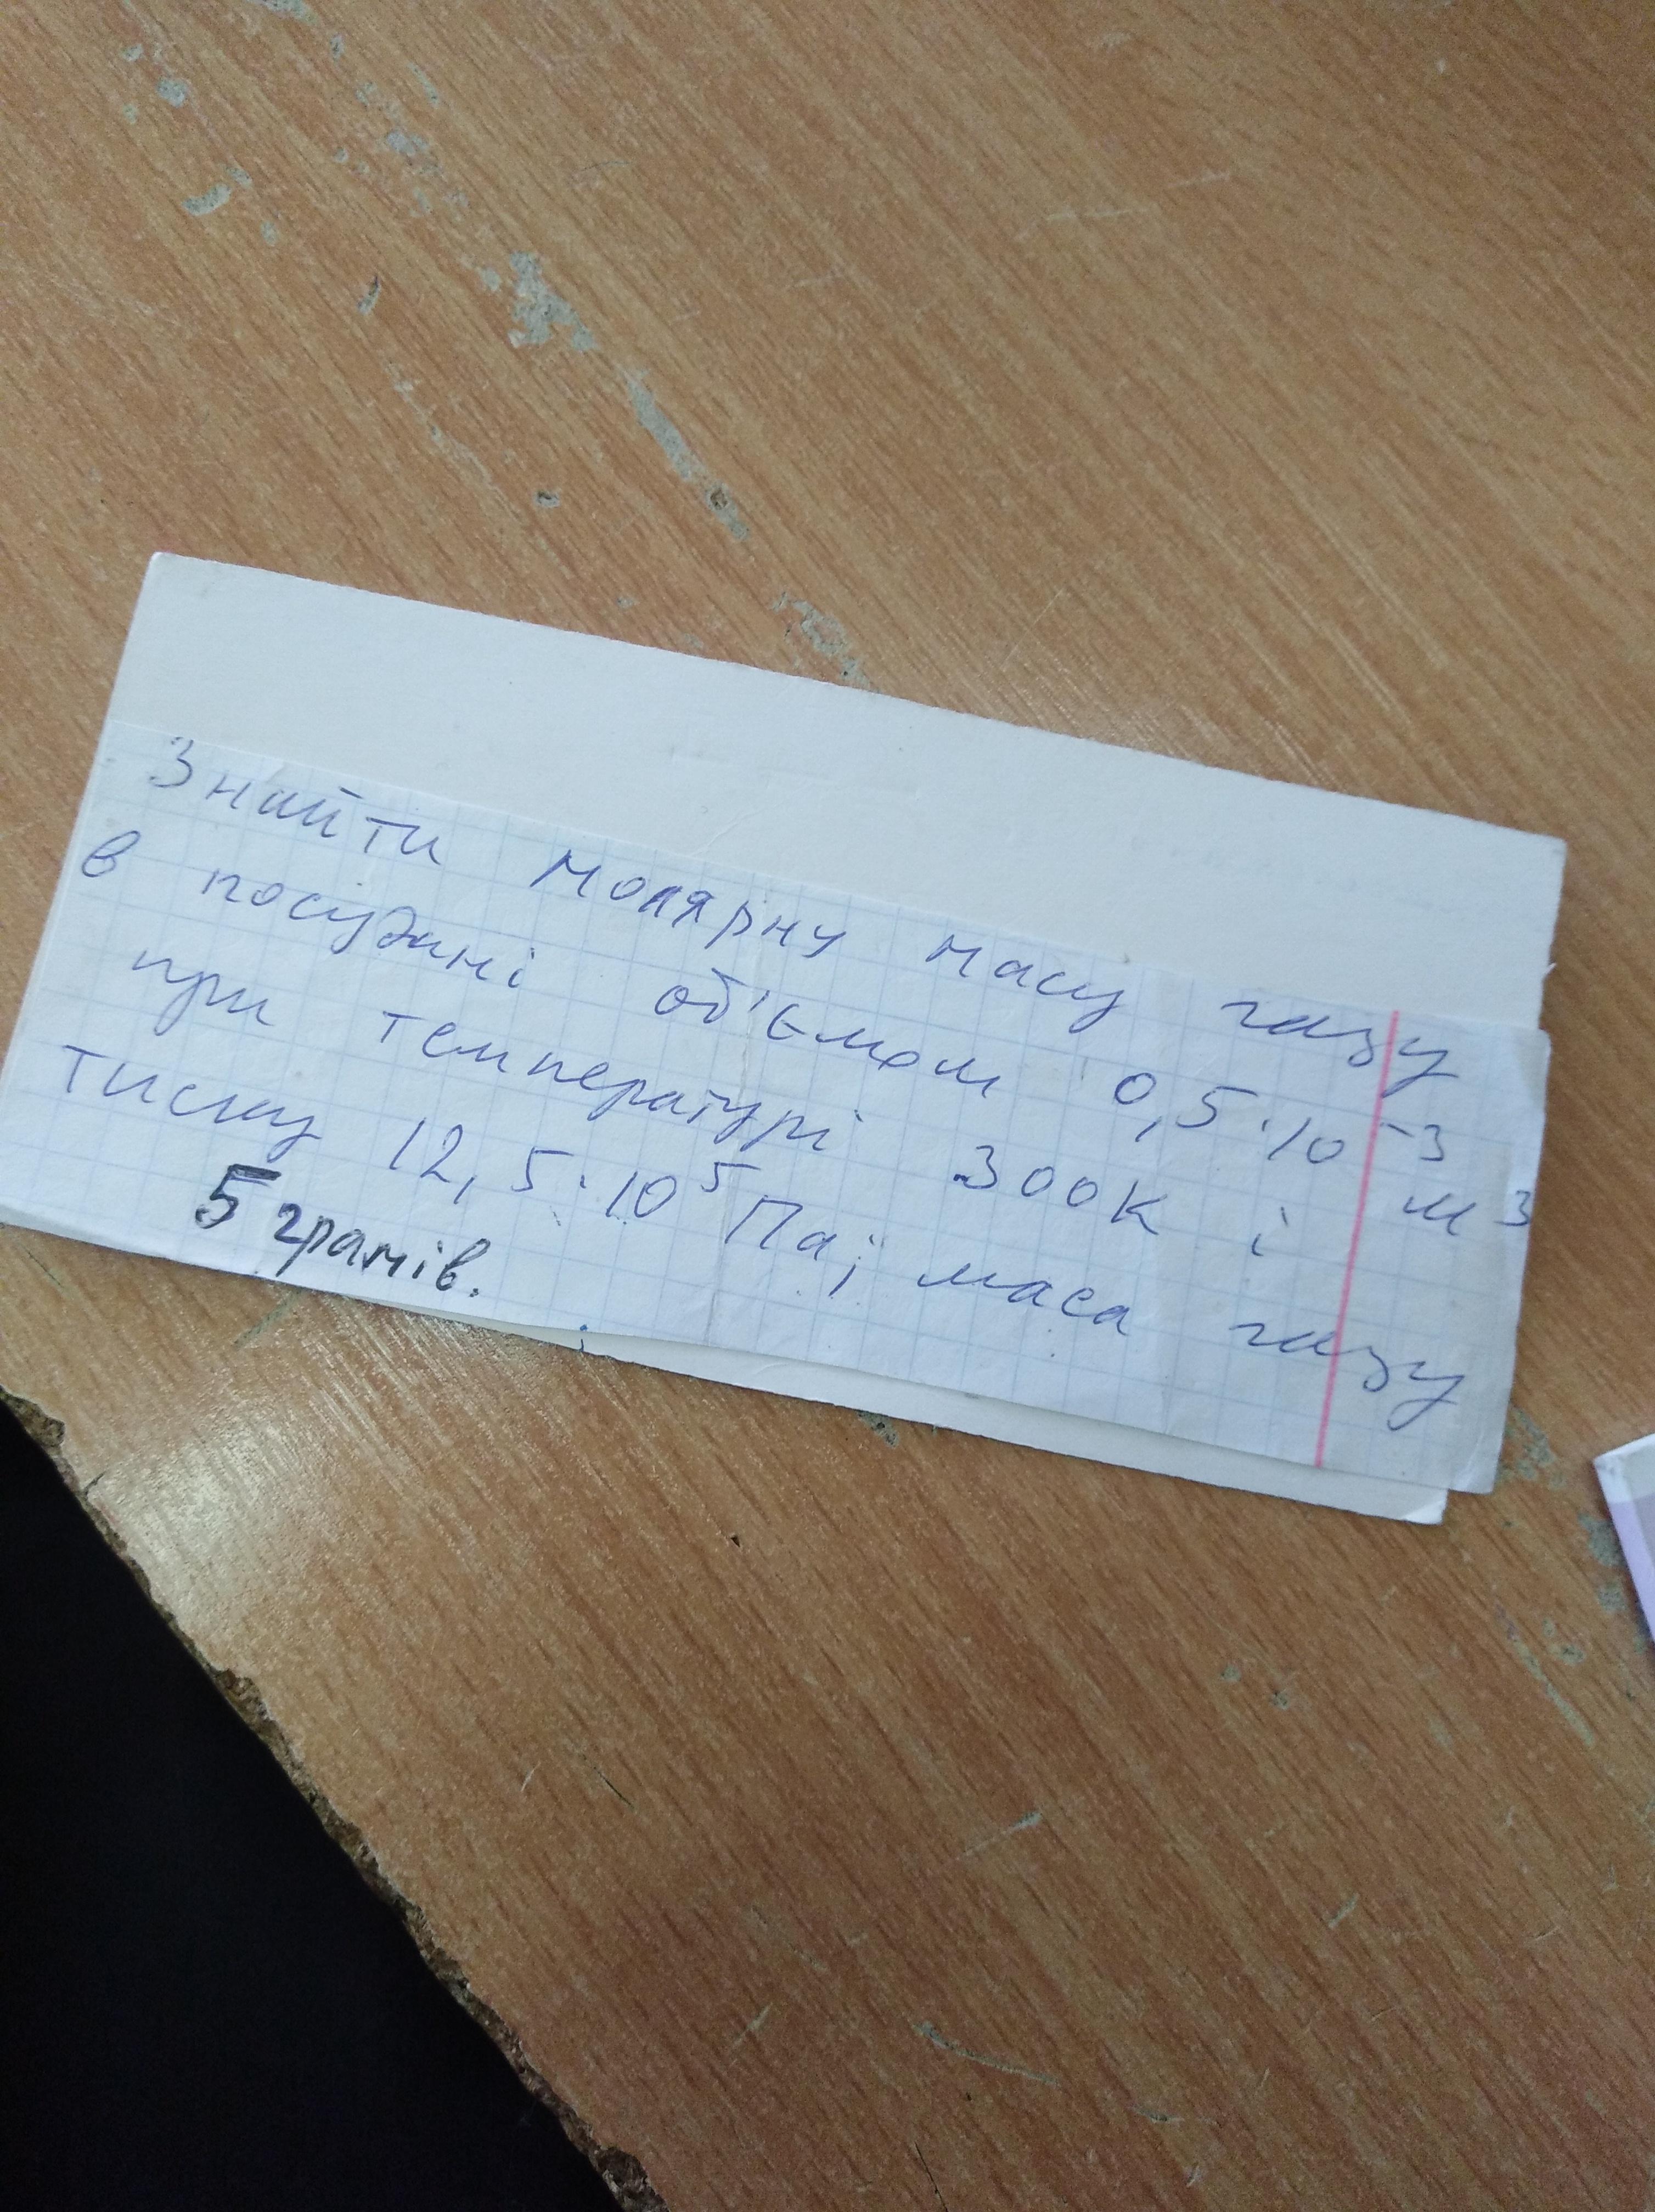 Знайти молярну масу газу
в посудині об'ємом 0,5·10⁻³ м³
при температурі 300К і
тиску 12,5·10⁵ Па; маса газу
5 грамів.